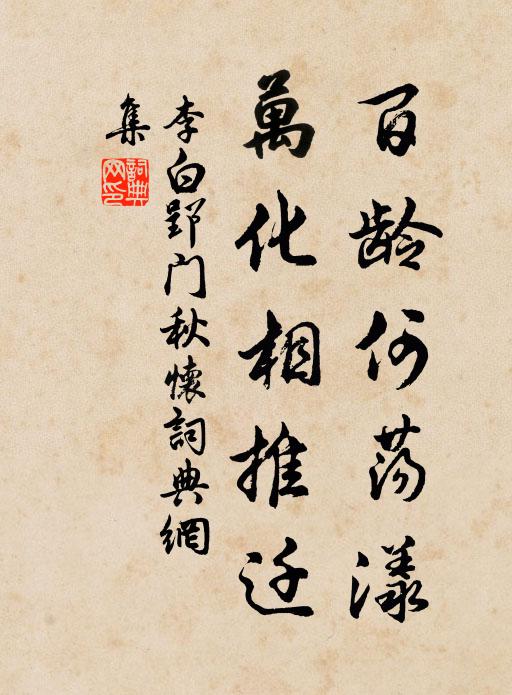 百龄何荡漾
萬化相推迁
李白郢门秋懷詞典網
集
詞典网印